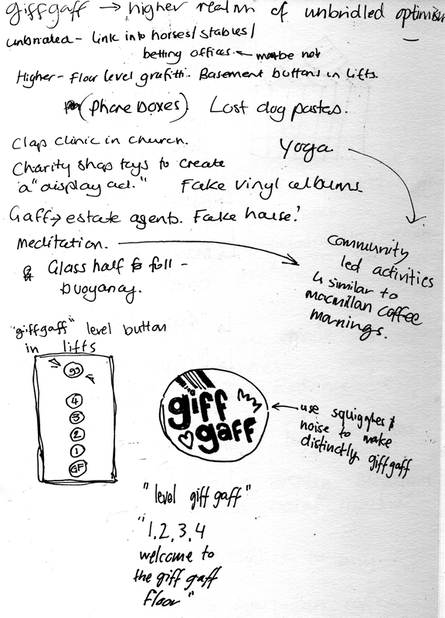 giffgaff → higher realm of unbridled optimism
unbridled - link into horses/stables/
betting offices. ← maybe not
Higher - Floor level graffiti. Basement buttons in lifts.
(Phone boxes) Lost dog posters.
Clap clinic in church.
Yoga
Charity shop toys to create
a "display ad."
Fake vinyl albums
Gaff → estate agents. Fake house?
Meditation.
community
led activities
↳ similar to
macmillan coffee
mornings.
Glass half full -
buoyancy.
"giffgaff" level button
in lifts
gg
4
3
2
1
GF
giff
gaff
← use squiggles &
noise to make
distinctly giffgaff
"level giff gaff"
"1, 2, 3, 4
welcome to
the giff gaff
floor"